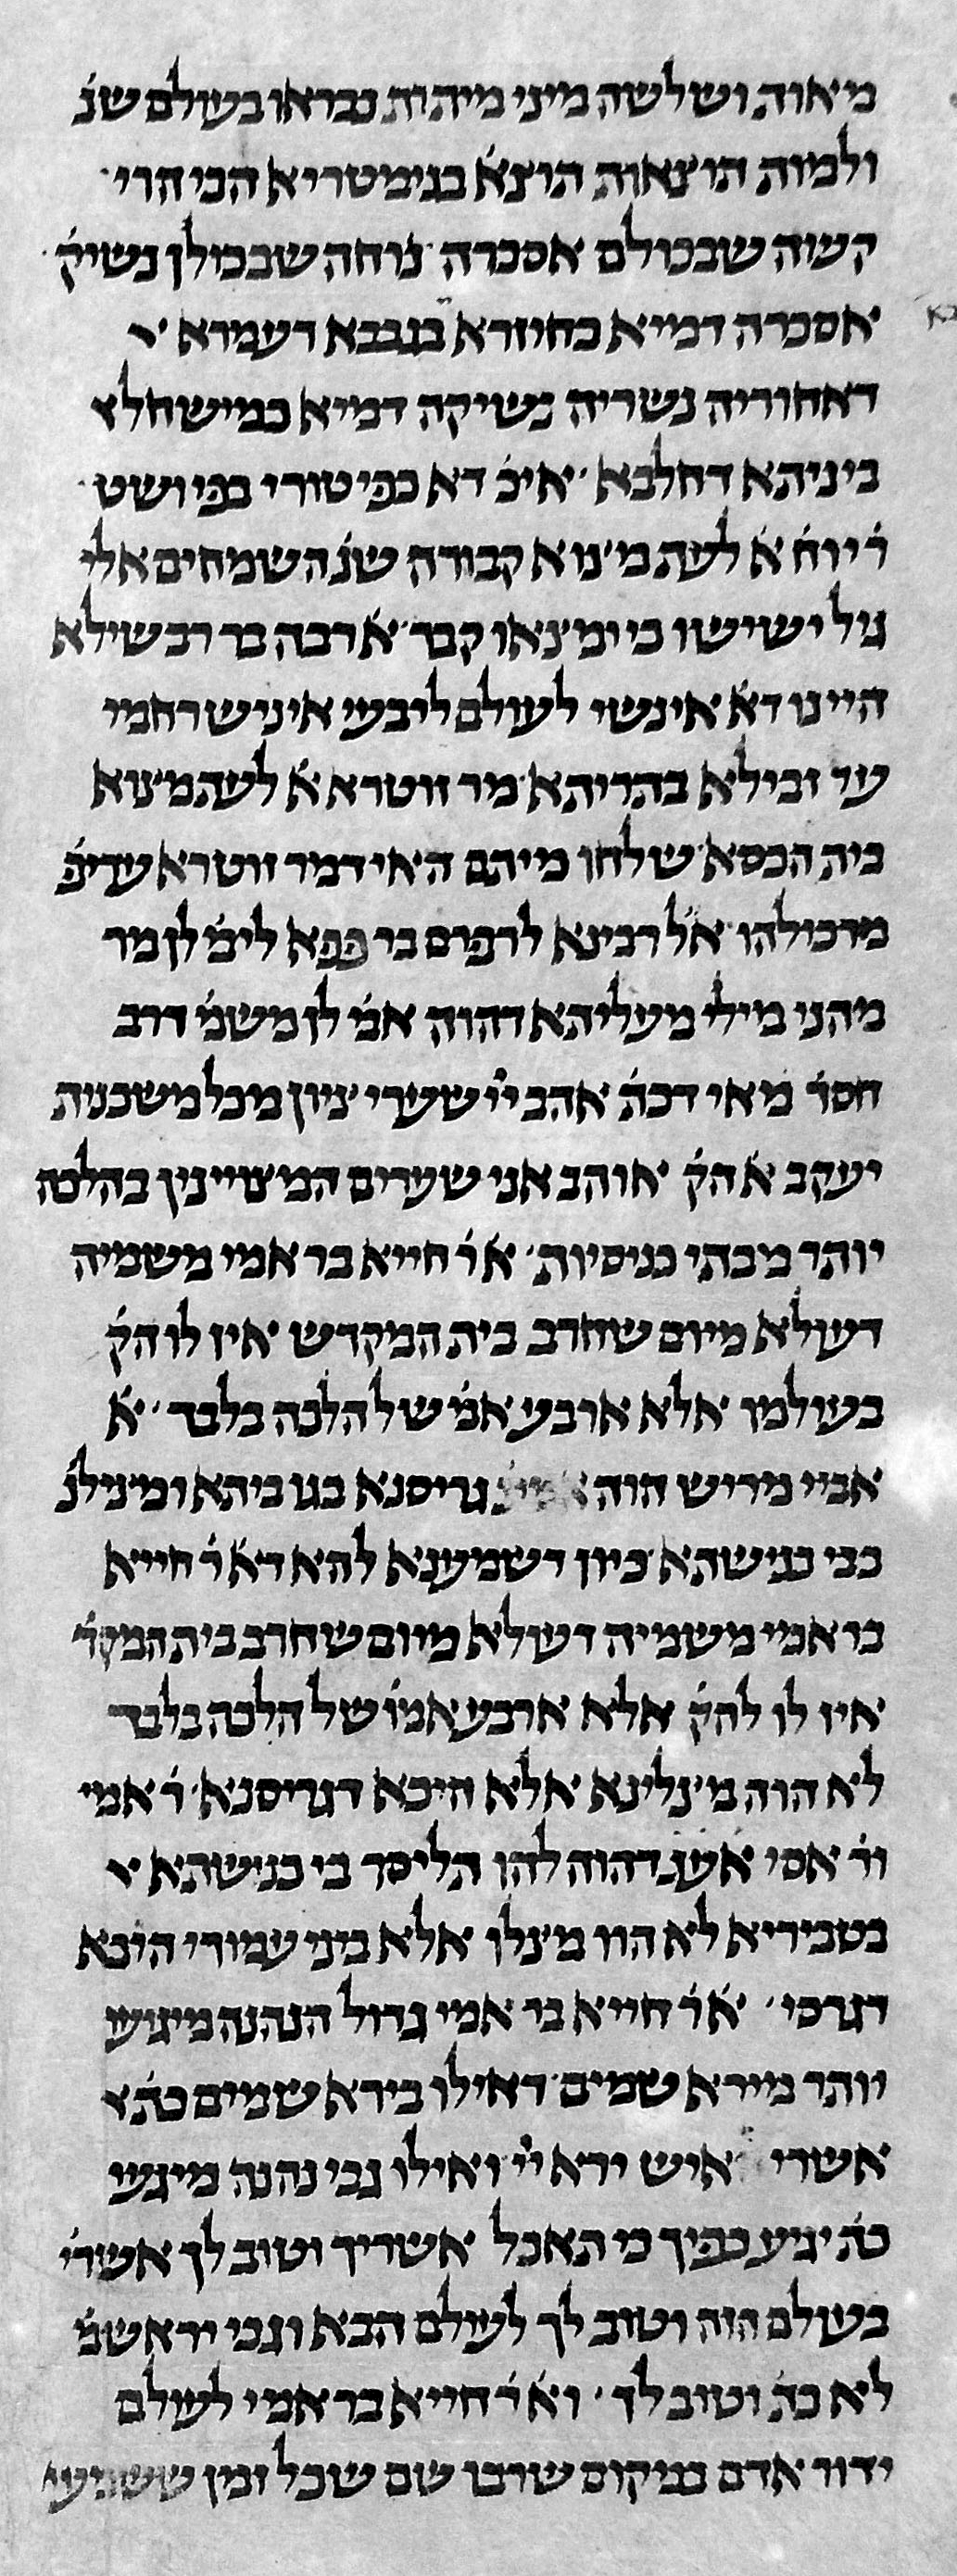 מאות ושלשה מיני מיתות נבראו בעולם שנ׳
ולמות תוצאות תוצא׳ בגימטריא הכי הוי׳
קשה שבכולם אסכרה נוחה שבכולן נשיק׳
אסכרה דמייא כחיזרא בגבבא דעמרא
דאחוריה נשריה נשיקה דמיא כמישחל
ביניתא דחלבא איכ׳ דא כפיטורי בפי ושט
ר׳ יוח׳ א׳ לעת מצוא קבורה שנ׳ השמחים אלי
גיל ישישו כי ימצאו קבר א׳ רבה בר רב שילא
היינו דא׳ אינשי לעולם ליבעי איניש רחמי
עד זבילא בתריתא מר זוטרא א׳ לעת מצוא
בית הכסא שלחו מיתם האי דמר זוטרא עדיפ׳
מדכולהו א׳ל רבינא לרפרם בר פפא לימ׳ לן מר
מהני מילי מעליתא דהוה אמ׳ לן משמ׳ דרב
חסד׳ מאי דכת׳ אהב ייי שערי ציון מכל משכנות
יעקב א׳ הק׳ אוהב אני שערים המצויינין בהלכה
יותר מבתי כניסיות א׳ר׳ חייא בר אמי משמיה
דעולא מיום שחרב בית המקדש אין לו הק׳
בעולמו אלא ארבע אמ׳ של הלכה בלבד א׳
אביי מריש הוה גריסנא בגו ביתא ומצילנ׳
בבי כנישתא כיון דשמענא להא דא׳ר׳ חייא
בר אמי משמיה דעולא מיום שחרב בית המקד׳
אין לו להק׳ אלא ארבע אמ׳ של הלכה בלבד
לא הוה מצלינא אלא היכא דגריסנא ר׳ אמי
ור׳ אסי אעג דהוה להו תליסר בי כנישתא
בטביריא לא הוו מצלו אלא ביני עמודי היכא
דגרסי א׳ר׳ חייא בר אמי גדול הנהנה מיגיעו
יותר מירא שמים דאילו בירא שמים כת׳
אשרי איש ירא ייי ואילו גבי נהנה מיגעו
כת׳ יגיע כפיך כי תאכל אשריך וטוב לך אשרי׳
בעולם הזה וטוב לך לעולם הבא וגבי ירא שמ׳
לא כת׳ וטוב לך וא׳ר׳ חייא בר אמי לעולם
ידור אדם במקום שרבו שם שכל זמן ששמעי